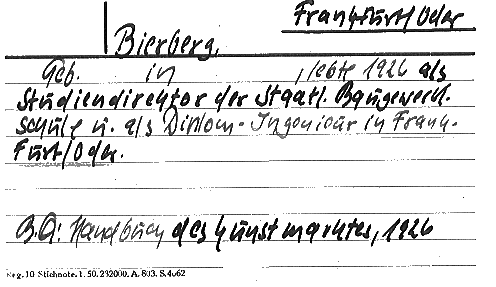 Frankfurt/Oder
Bierberg,
Geb. in , lebte 1926 als
Studiendirektor der Staatl. Baugewerk-
schule u. als Diplom-Ingenieur in Frank-
furt/Oder.
B.Q: Handbuch des Kunstmarktes, 1926
Reg. 10 Stichnote. 1. 50. 232000. A. 803. S. 4662